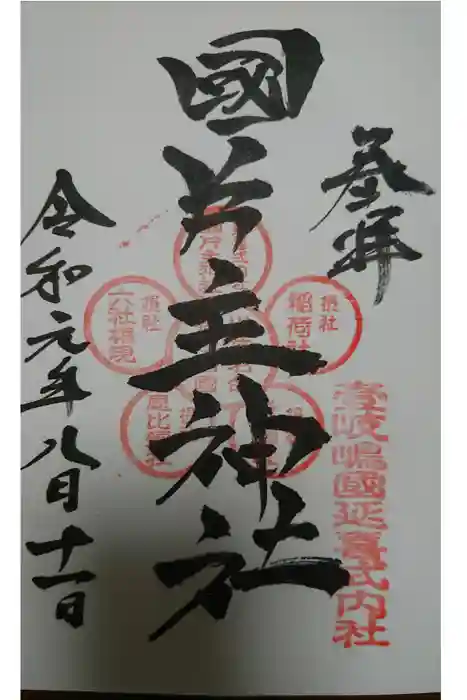 奉拝
壱岐嶋國延喜式内社
國片主神社
摂社
稲荷社
摂社
六社権現
恵比須社
令和元年八月十一日